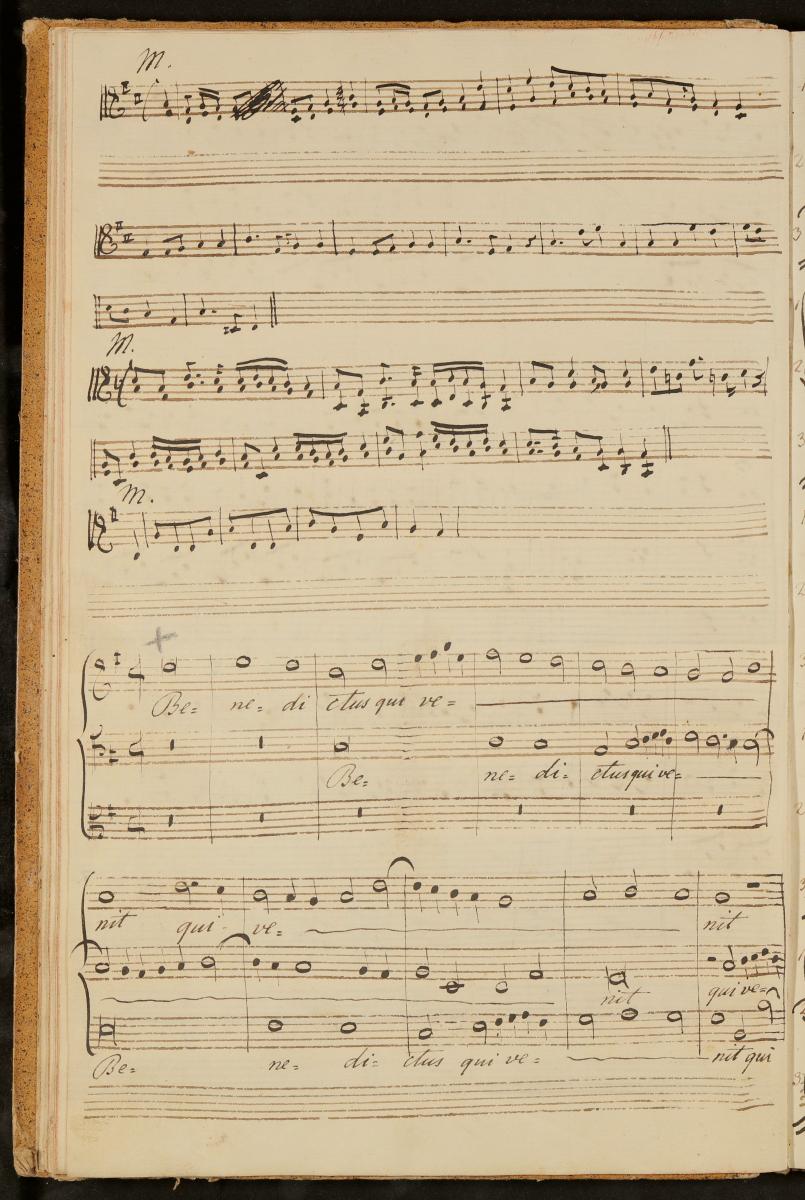 M.
M.
M.
Be= ne= di ctus qui ve=
Be= ne= di= ctus qui ve=
nit qui ve= nit
nit qui ve=
Be= ne= di= ctus qui ve= nit qui